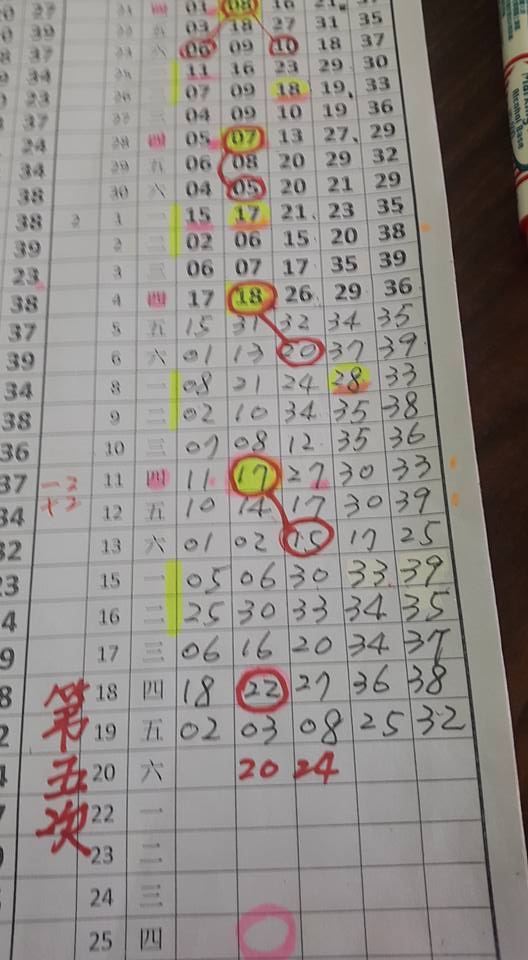 27 01 08 16 21
39 03 18 27 31 35
37 六 06 09 10 18 37
34 11 16 23 29 30
23 07 09 18 19 33
37 04 09 10 19 36
24 28 四 05 07 13 27 29
34 29 五 06 08 20 29 32
38 30 六 04 05 20 21 29
38 2 1 一 15 17 21 23 35
39 2 二 02 06 15 20 38
23 3 三 06 07 17 35 39
38 4 四 17 18 26 29 36
37 5 五 15 31 32 34 35
39 6 六 01 13 20 37 39
34 8 一 08 21 24 28 33
38 9 二 02 10 34 35 38
36 10 三 07 08 12 35 36
37 -2 11 四 11 17 27 30 33
34 +2 12 五 10 14 17 30 39
32 13 六 01 02 15 17 25
23 15 一 05 06 30 33 39
4 16 二 25 30 33 34 35
9 17 三 06 16 20 34 37
8 18 四 18 22 27 36 38
2 19 五 02 03 08 25 32
20 六 20 24
22 一
23 二
24 三
25 四
第五次